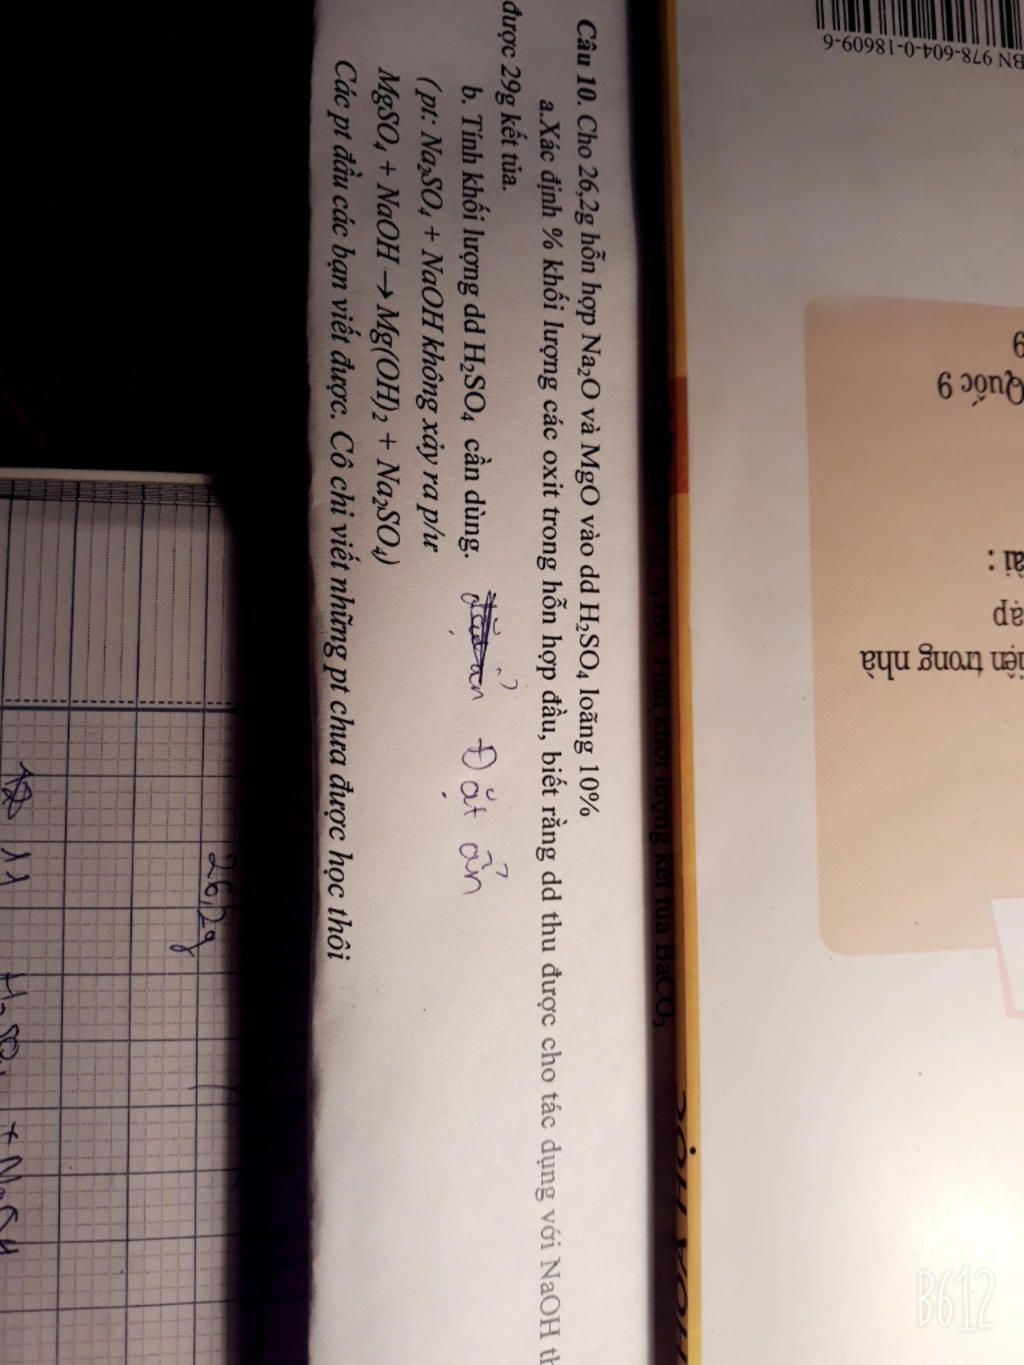 Câu 10. Cho 26,2g hỗn hợp Na₂O và MgO vào dd H₂SO₄ loãng 10%
a.Xác định % khối lượng các oxit trong hỗn hợp đầu, biết rằng dd thu được cho tác dụng với NaOH
được 29g kết tủa.
b. Tính khối lượng dd H₂SO₄ cần dùng.
Đặt ẩn
(pt: Na₂SO₄ + NaOH không xảy ra p/ư
MgSO₄ + NaOH → Mg(OH)₂ + Na₂SO₄)
Các pt đầu các bạn viết được. Cô chỉ viết những pt chưa được học thôi
lượng kết tủa BaCO₃
BN 978-604-0-18609-6
9
Quốc 9
ài :
ập
iện trong nhà
26,2g
11
B612